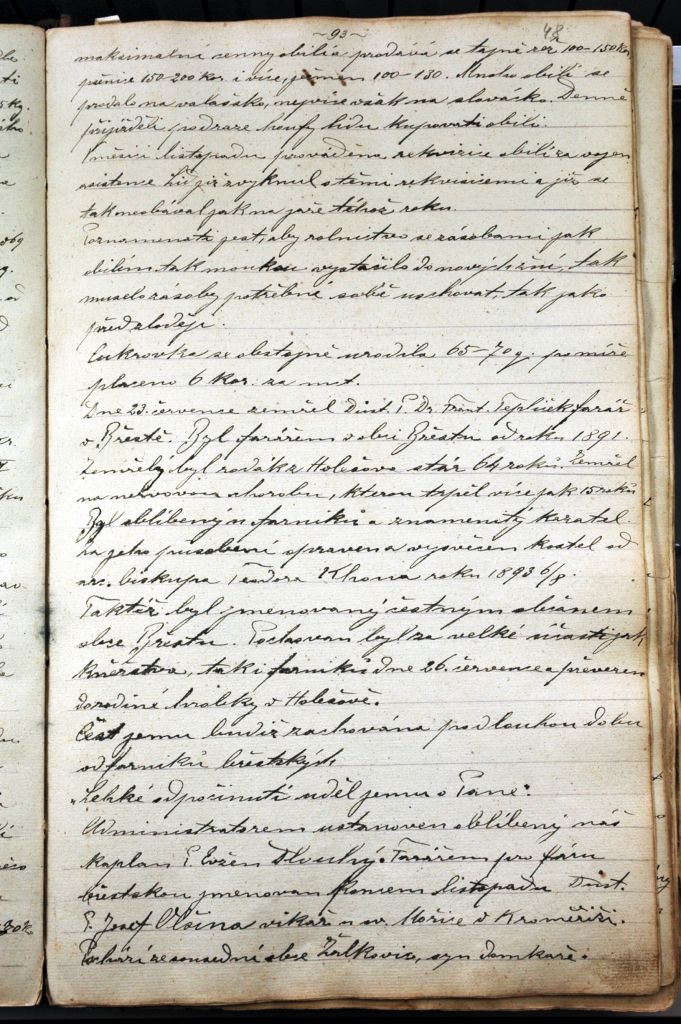 ~ 93 ~
48
maksimalní cenny obilia prodává se tajně rež 100-150 kor,
pšenice 150-200 kor. i více, ječmen 100-130. Mnoho obilí se
prodalo na valašsko, nejvíce však na slovácko. Denně
přijížděli podraze houfy lidu kupovati obilí.
měsíci listopadu prováděna rekvizice obilí za vojen
asistence Lid již zvyknul s těmi rekvisicemi a již se
tak neobával jak na jaře téhož roku.
Poznamenati jest, aby rolnictvo se zásobami jak
obilím tak moukou vystačilo do nových žní, tak
muselo zásoby potřebné sobě uschovat, tak jako
před zloději.
Cukrovka se obstojně urodila 65-70 q. po míře
placeno 6 kor. za mct.
Dne 23. července zemřel Dúst. P. Dr. Frant. Teplíček farář
v Břestě. Byl farářem v obci Břestu od roku 1891.
Zemřelý byl rodák z Holešova stár 64 roků. Zemřel
na nervovou chorobu, kterou trpěl více jak 15 roků
Byl oblíbený u farníků a znamenitý kazatel.
Za jeho působení opraven a vysvěcen kostel od
arc. biskupa Teodora Khona roku 1893 6/8.
Taktéž byl jmenovaný čestným občanem
obce Břestu. Pochovan byl za velké účasti jak
kněžstva, tak i farníků dne 26. července a převezen
do rodiné hrobky v Holešově.
Čest jemu budiž zachována pod louhou dobu
od farníků břestských
"Lehké odpočinutí uděl jemu o Pane"
Administratorem ustanoven oblíbený náš
kaplan P. Evžen Dlouhý. Farářem pro faru
břestskou jmenovan koncem listopadu Dúst.
P. Josef Olšina vikář u sv. Mořice v Kroměříži.
Pochází ze sousední obce Žalkovic, syn domkaře.